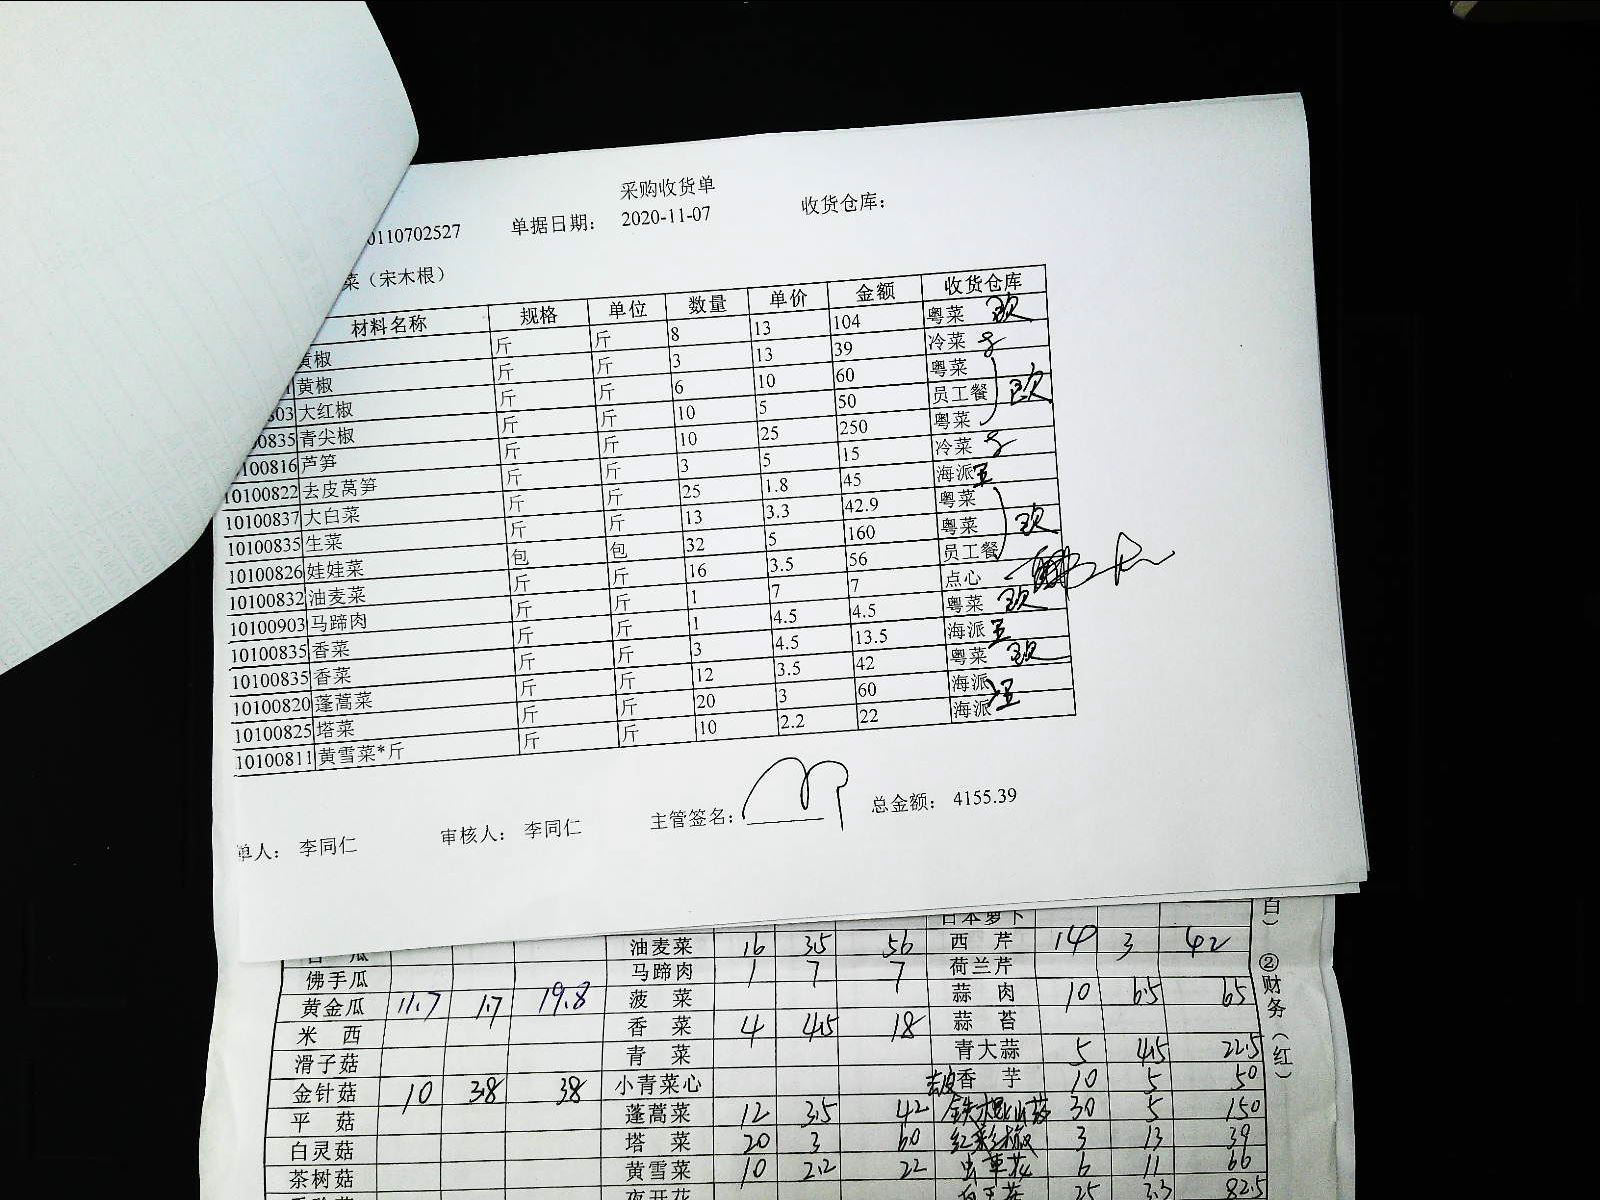 采购收货单
0110702527 单据日期： 2020-11-07 收货仓库：
菜（宋木根）
材料名称 规格 单位 数量 单价 金额 收货仓库
黄椒 斤 斤 8 13 104 粤菜
黄椒 斤 斤 3 13 39 冷菜
803 大红椒 斤 斤 6 10 60 粤菜
00835 青尖椒 斤 斤 10 5 50 员工餐
100816 芦笋 斤 斤 10 25 250 粤菜
10100822 去皮莴笋 斤 斤 3 5 15 冷菜
10100837 大白菜 斤 斤 25 1.8 45 海派
10100835 生菜 斤 斤 13 3.3 42.9 粤菜
10100826 娃娃菜 包 包 32 5 160 粤菜
10100832 油麦菜 斤 斤 16 3.5 56 员工餐
10100903 马蹄肉 斤 斤 1 7 7 点心
10100835 香菜 斤 斤 1 4.5 4.5 粤菜
10100835 香菜 斤 斤 3 4.5 13.5 海派
10100820 蓬蒿菜 斤 斤 12 3.5 42 粤菜
10100825 塔菜 斤 斤 20 3 60 海派
10100811 黄雪菜*斤 斤 斤 10 2.2 22 海派
单人： 李同仁 审核人： 李同仁 主管签名： 总金额： 4155.39
日本萝卜
油麦菜 16 3.5 56 西芹 14 3 42
佛手瓜 马蹄肉 1 7 7 荷兰芹
黄金瓜 11.7 1.7 19.8 菠菜 蒜肉 10 6.5 65
米西 香菜 4 4.5 18 蒜苔
滑子菇 青菜 青大蒜 5 4.5 22.5
金针菇 10 3.8 38 小青菜心 去皮香芋 10 5 50
平菇 蓬蒿菜 12 3.5 42 铁棍山药 30 5 150
白灵菇 塔菜 20 3 60 红彩椒 3 13 39
茶树菇 黄雪菜 10 2.2 22 虫草花 6 11 66
夜开花 25 3.3 82.5
白）
②财务（红）